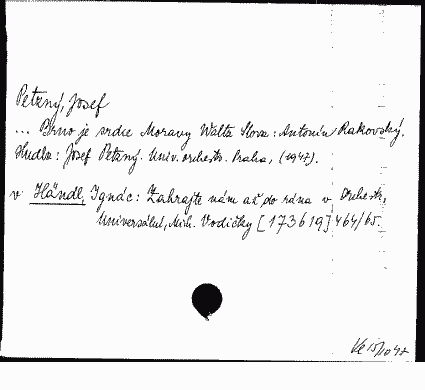 Petzný, Josef
... Brno je srdce Moravy Waltz Slova: Antonín Rakovský.
Hudba: Josef Petzný. Univ. orchestr. Praha, (1947).
v Händl, Ignác: Zahrajte nám až do rána v Orchestr,
Universální, Mich. Vodičky [173619] 464/65.
15/10 47